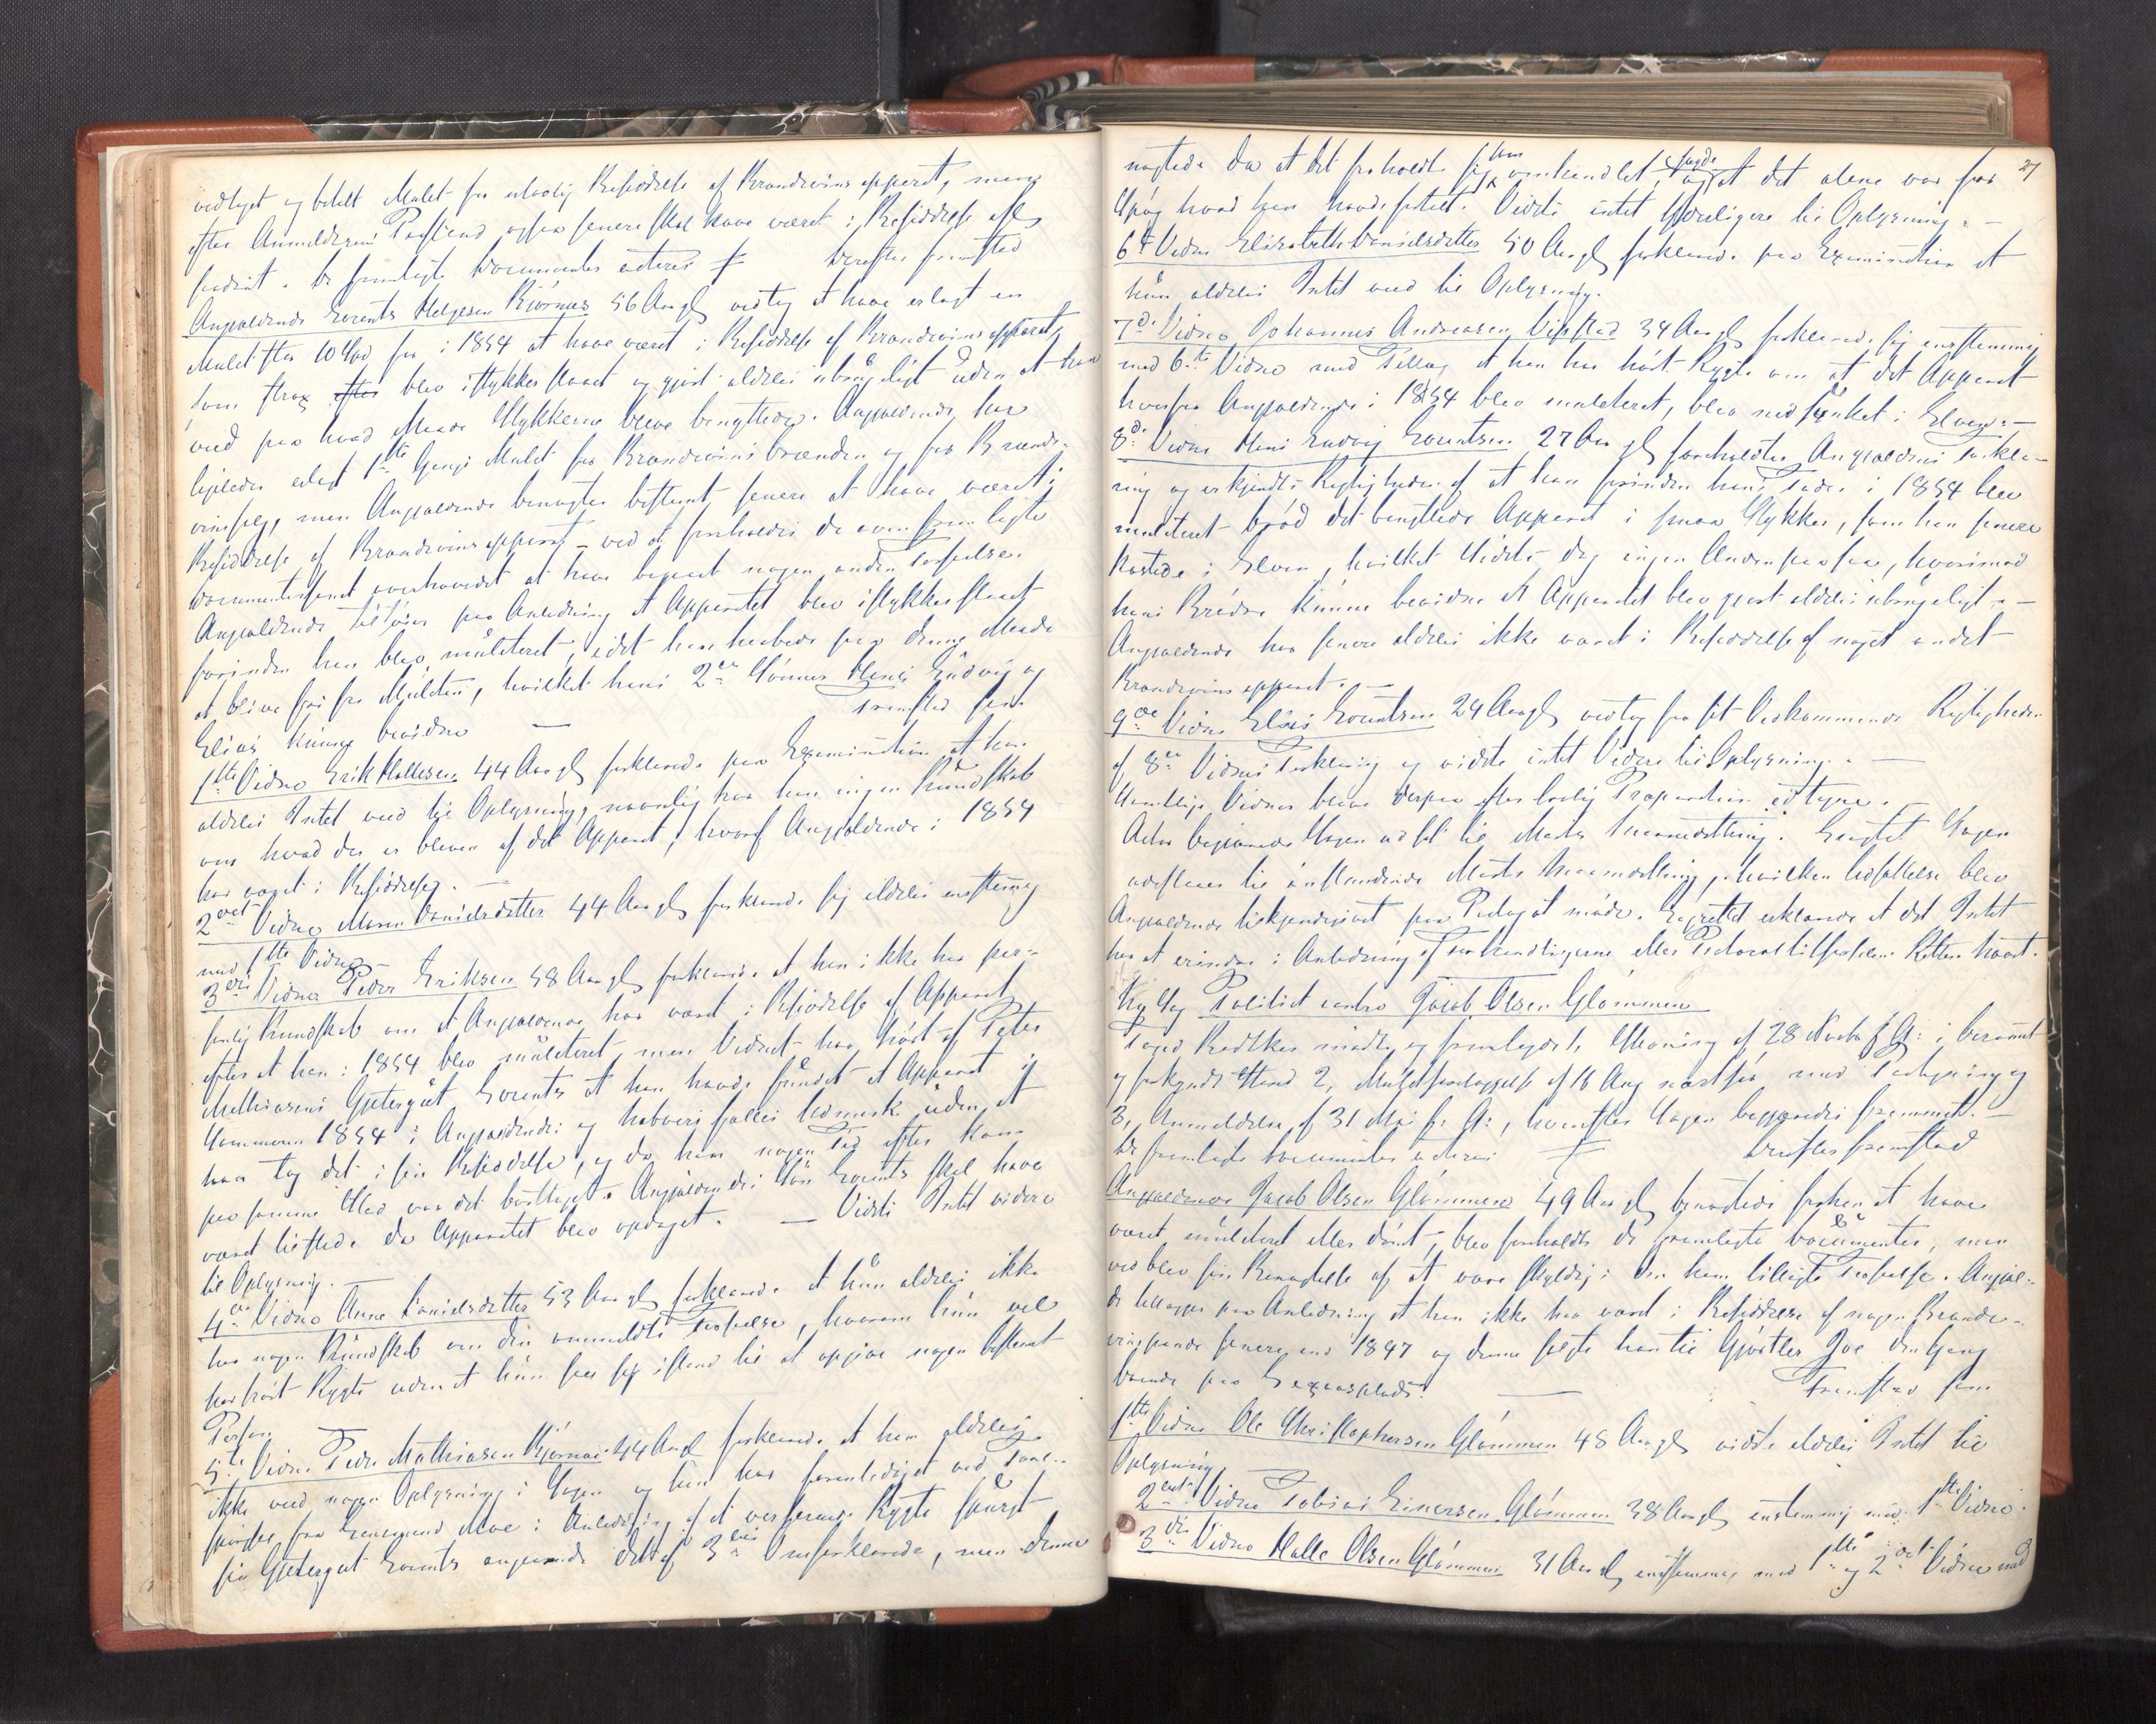 vedtaget og betalt Mulct for ulovlig Besiddelse af Brændeviinsapparat, men
efter Anmelderens Paastand ogsaa senere skal have været i Besiddelse af
saadant. De fremlagte Documenter acteres ╪ Derefter fremstod
Angjældende Lorents Helgesen Kjørnæs 56 Aar gl vedtog at have erlagt en
Mulct stor 10 Spd for i 1854 at have været i Besiddelse af Brændeviinsapparat,
som strax efter blev istykkerslaaet og gjort aldeles ubrugeligt uden at han
veed paa hvad Maade Stykkerne bleve benyttede. Angjældende har
ligeledes erlagt 1ste Gangs Mulct for Brændeviinsbrænden og for Brænde-
viinssalg, men Angjældende benægter bestemt senere at have været i
Besiddelse af Brændeviinsapparat - ved at foreholdes de ovenfremlagte
Documenter samt overhovedet at have begaaet nogen anden Forseelse.
Angjældende tilføier paa Anledning at Apparatet blev istykkerslaaet
forinden han blev mulcteret, idet han haabede paa denne Maade
at blive fri for Mulcten, hvilket hans 2de Sønner Hans Ludvig og
Elias kunne bevidne — Fremstod som
1ste Vidne Erik Hallesen 44 Aar gl forklarede paa Examination at han
aldeles Intet veed til Oplysning, navnlig har han ingen Kundskab
om hvad der er bleven af det Apparat, hvoraf Angjældende i 1854
har været i Besiddelse. —
2det Vidne Maren Danielsdatter 44 Aar gl forklarede sig aldeles enstemmig
med 1ste Vidne. —
3die Vidne Peder Eriksen 58 Aar gl forklarede at han ikke har per-
sonlig Kundskab om at Angjældende har været i Besiddelse af Apparat
efter at han i 1854 blev mulcteret, men Vidnet har hørt af Peter
Mathiasens Gjetergut Lorents at han havde fundet et Apparat i
Sommeren 1854 i Angjældendes og Naboers fælles Udmark uden at
han tog det i sin Besiddelse, og da han nogen Tid efter kom
paa samme Sted var det borttaget. Angjældendes Søn Lorents skal have
været tilstede da Apparatet blev opdaget. — Vidste Intet videre
til Oplysning. —
4de Vidne Anne Danielsdatter 53 Aar gl forklarede at hun aldeles ikke
har nogen Kundskab om den anmeldte Forseelse, hvorom hun vel
har hørt Rygte uden at hun ser sig istand til at opgive nogen bestemt
Person. —
5te Vidne Peder Mathiasen Kjørnæs 44 Aar gl forklarede at han aldeles
ikke veed nogen Oplysning i Sagen og han har foranlediget ved Fore-
spørgsel fra Lensmand Moe i Anledning af et verserende Rygte spurgt
sin Gjetergut Lorents angaaende det af 3die Omforklarede, men denne
27
nægtede da at det forholdt sig som omhandlet, og sagde at det alene var for
Spøg hvad han havde fortalt. Vidste intet Yderligere til Oplysning. —
6te Vidne Elisabeth Danielsdatter 50 Aar gl forklarede paa Examination at
hun aldeles Intet veed til Oplysning.
7de Vidne Johannes Andreasen Vipstad 34 Aar gl forklarede sig enstemmig
med 6te Vidne med Tillæg at han har hørt Rygte om at det Apparat
hvorfor Angjældende i 1854 blev mulcteret, blev nedsænket i Elven. —
8de Vidne Hans Ludvig Lorentsen 27 Aar gl foreholdtes Angjældendes Forkla-
ring og erkjendte Rigtigheden af at han forinden hans Fader i 1854 blev
mulcteret brød det benyttede Apparat i smaa Stykker, som han senere
kastede i Elven, hvilket Vidste dog ingen Anden paasaa, hvorimod
hans Brødre kunne bevidne at Apparatet blev gjort aldeles ubrugeligt. —
Angjældende har senere aldeles ikke været i Besiddelse af noget andet
Brændeviinsapparat. —
9de Vidne Elias Lorentsen 24 Aar gl vedtog for sit Vedkommende Rigtigheden
af 8de Vidnes Forklaring og vidste intet Videre til Oplysning. —
Samtlige Vidner bleve derpaa efter lovlig Præparation edtagne. —
Actor begjærede Sagen udsat til Mods Sammenkomst. Eragtet Sagen
udsættes til anstundende Mods Sammenkomst, hvilken Udsættelse blev
Angjældende tilkjendegivet paa Paalæg at møde. Lagrettet erklærede at det Intet
har at erindre i Anledning af Forhandlingerne eller Protocoltilførselen. Retten hævet.
Ny Sag Politiet contra Jacob Olsen Glømmen
Foged Radtker mødte og fremlagde 1, Skrivning af 28 Novbr f. A. i beramt
og forkyndt Stand 2, Mulctforelæggelse af 16 Aug næstfør med Paategning og
3, Anmeldelse af 31 Mai f. A., hvorefter Sagen begjæredes fremmet. —
De fremlagte Documenter acteres ╪ Derefter fremstod
Angjældende Jacob Olsen Glømmen 49 Aar gl benægtede forhen at have
været mulcteret eller dømt, blev foreholdt de fremlagte Documenter, men
vedblev sin Benægtelse af at være skyldig i den ham tillagte Forseelse. Angjæl-
de tillægger paa Anledning at han ikke har været i Besiddelse af nogen Brænde-
viinspande senere end 1847 og denne solgte han til Gjørtler Joe den Gang
boende paa Legnæsplads. — Fremstod som
1ste Vidne Ole Christophersen Glømmen 48 Aar gl vidste aldeles Intet til
Oplysning. —
2det Vidne Tobias Einersen Glømmen 38 Aar gl enstemmig med 1ste Vidne.
3die Vidne Halle Olsen Glømmen 31 Aar gl enstemmig med 1ste og 2det Vidne med